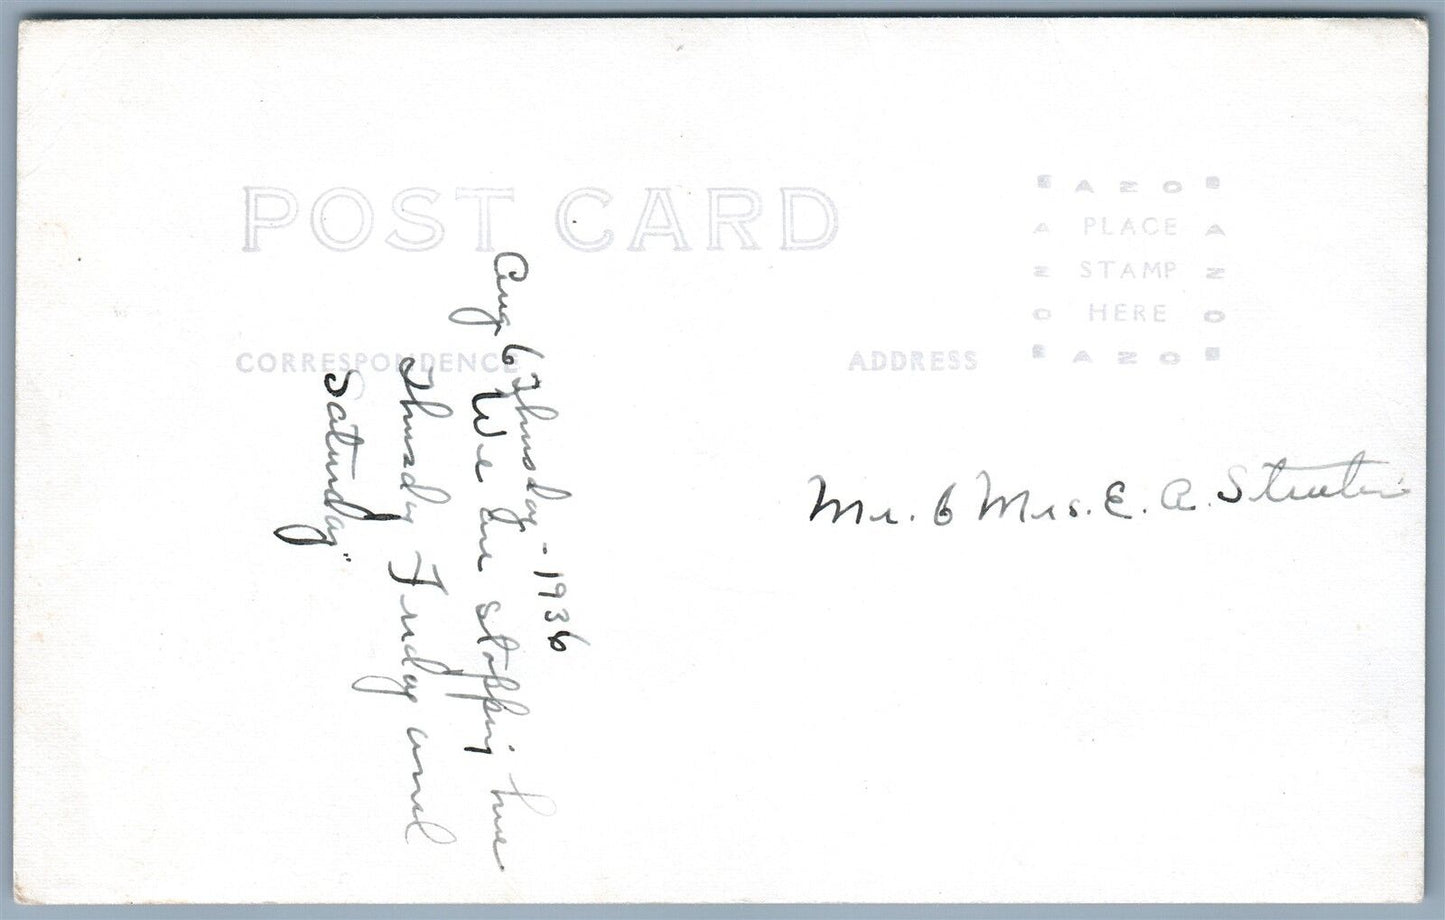 POST CARD
CORRESPONDENCE
ADDRESS
AZO
PLACE
STAMP
HERE
AZO
AZO
AZO
Aug 6 Thusday - 1936
We are stopping here
Thursday Friday and
Saturday"
Mr. & Mrs. E. A.